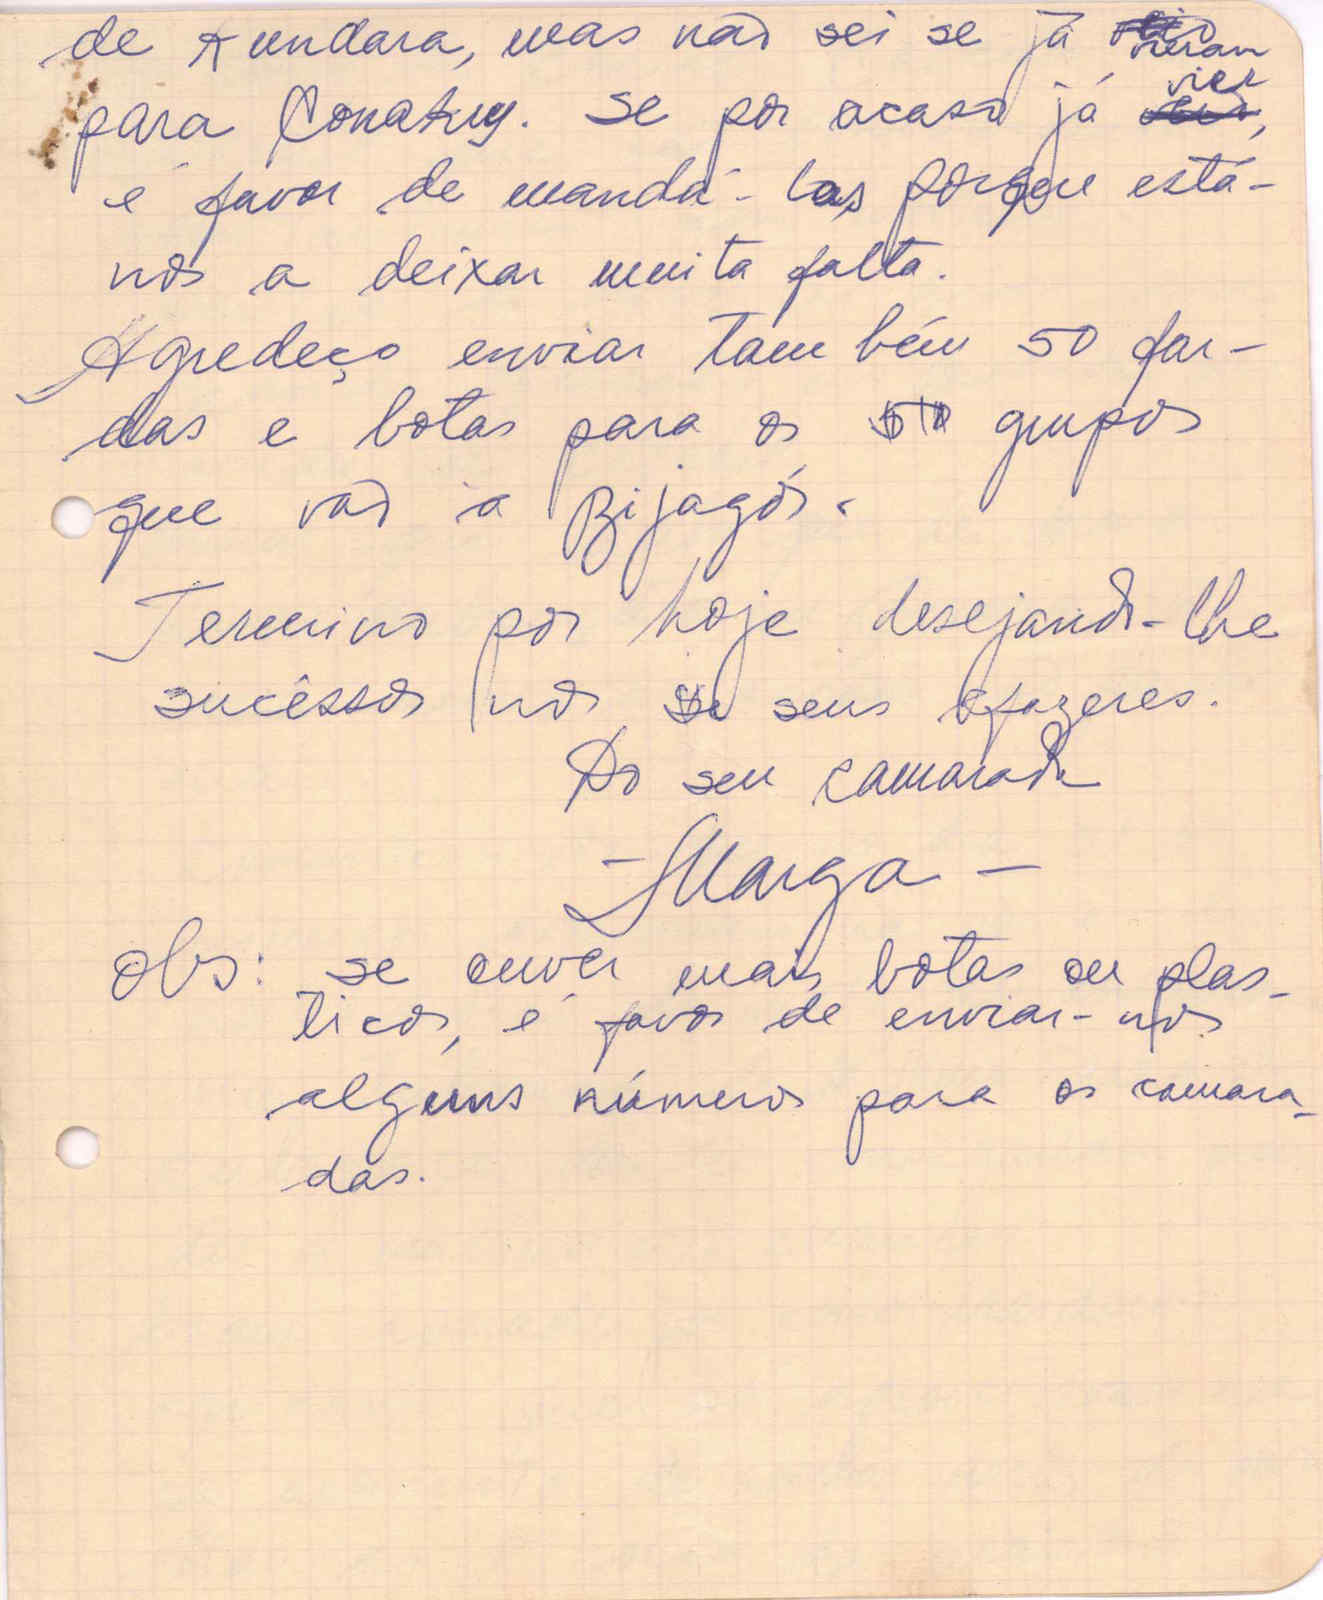 de Kundara, mas não sei se já vieram
para Conakry. Se por acaso já vier,
é favor de mandá-las porque está-
nos a deixar muita falta.
Agredeço enviar também 50 far-
das e botas para os grupos
que vão a Bijagós.
Termino por hoje desejando-lhe
sucêssos nos seus afazeres.
Do seu camarada
- Marga -
Obs: se ouver mais botas ou plas-
ticos, é favor de enviar-nos
alguns números para os camara-
das.